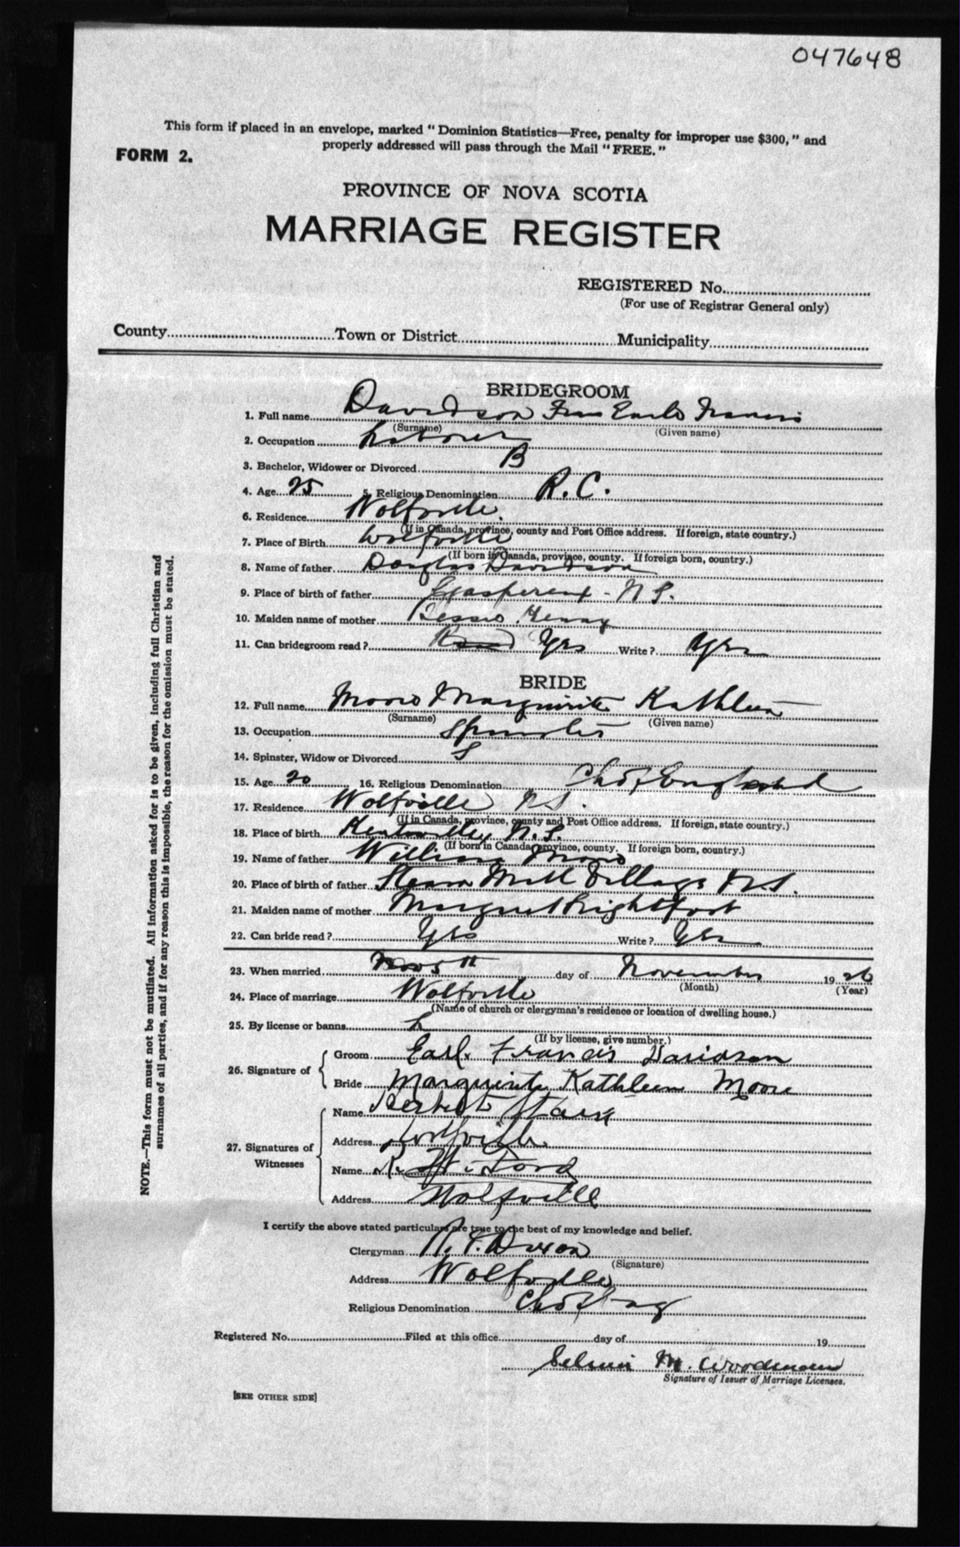 047648
This form if placed in an envelope, marked "Dominion Statistics—Free, penalty for improper use $300," and
properly addressed will pass through the Mail "FREE."
FORM 2.
PROVINCE OF NOVA SCOTIA
MARRIAGE REGISTER
REGISTERED No.
(For use of Registrar General only)
County Town or District Municipality
BRIDEGROOM
1. Full name Davidson Earle Francis
(Surname) (Given name)
2. Occupation Laborer
3. Bachelor, Widower or Divorced B
4. Age 25 5. Religious Denomination R.C.
6. Residence Wolfville.
(If in Canada, province, county and Post Office address. If foreign, state country.)
7. Place of Birth Wolfville
(If born in Canada, province, county. If foreign born, country.)
8. Name of father Douglas Davidson
9. Place of birth of father Gaspereaux - N S.
10. Maiden name of mother Bessie
11. Can bridegroom read? Yes Write? Yes
BRIDE
12. Full name Moore Marguirite Kathleen
(Surname) (Given name)
13. Occupation Spinster
14. Spinster, Widow or Divorced S
15. Age 20 16. Religious Denomination Ch of England
17. Residence Wolfville N S.
(If in Canada, province, county and Post Office address. If foreign, state country.)
18. Place of birth Kentville, N.S.
(If born in Canada, province, county. If foreign born, country.)
19. Name of father William Moore
20. Place of birth of father Steam Mill Village N.S.
21. Maiden name of mother Margaret Rightfoot
22. Can bride read? Yes Write? Yes
23. When married Nov 5th day of November 1926
(Month) (Year)
24. Place of marriage Wolfville
(Name of church or clergyman's residence or location of dwelling house.)
25. By license or banns L
(If by license, give number.)
26. Signature of Groom Earl Francis Davidson
Bride Marguirite Kathleen Moore
27. Signatures of Witnesses Name Herbert Stark
Address Wolfville
Name W. Ford
Address Wolfville
I certify the above stated particulars are true to the best of my knowledge and belief.
Clergyman R. F. Dixon
(Signature)
Address Wolfville
Religious Denomination Ch of Eng
Registered No. Filed at this office day of 19
Selwin M. Woodman
Signature of Issuer of Marriage Licenses.
[SEE OTHER SIDE]
NOTE.—This form must not be mutilated. All information asked for is to be given, including full Christian and
surnames of all parties, and if for any reason this is impossible, the reason for the omission must be stated.